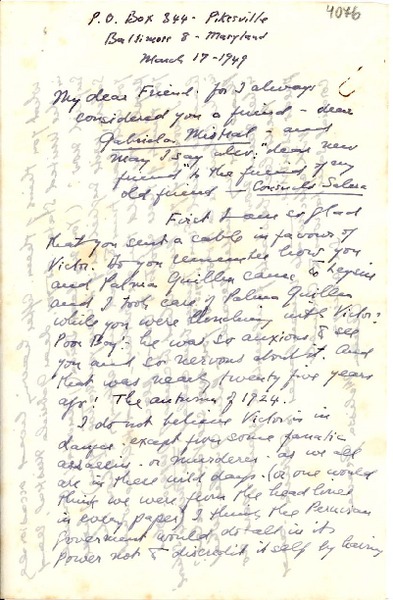 4076
P.O. Box 844 - Pikesville
Baltimore 8 - Maryland
March 17 - 1949
My dear Friend: for I always
considered you a friend - dear
Gabriela Mistral - and
may I say also: "dear new
friend" to the friend of my
old friend - Consuelo Saleva
First I am so glad
that you sent a cable in favour of
Victor. Do you remember how you
and Palma Guillen came to Leysin
and I took care of Palma Guillen
while you were lunching with Victor?
Poor Boy! - he was so anxious to see
you and so nervous about it. And
that was nearly twenty five years
ago! The autumn of 1924.
I do not believe Victor is in
danger except from some fanatic
assassin - or murderer - as we all
are in these wild days. (or one would
think we were from the headlines
in every paper) I think the Peruvian
Government would do all in its
power not to discredit itself by having